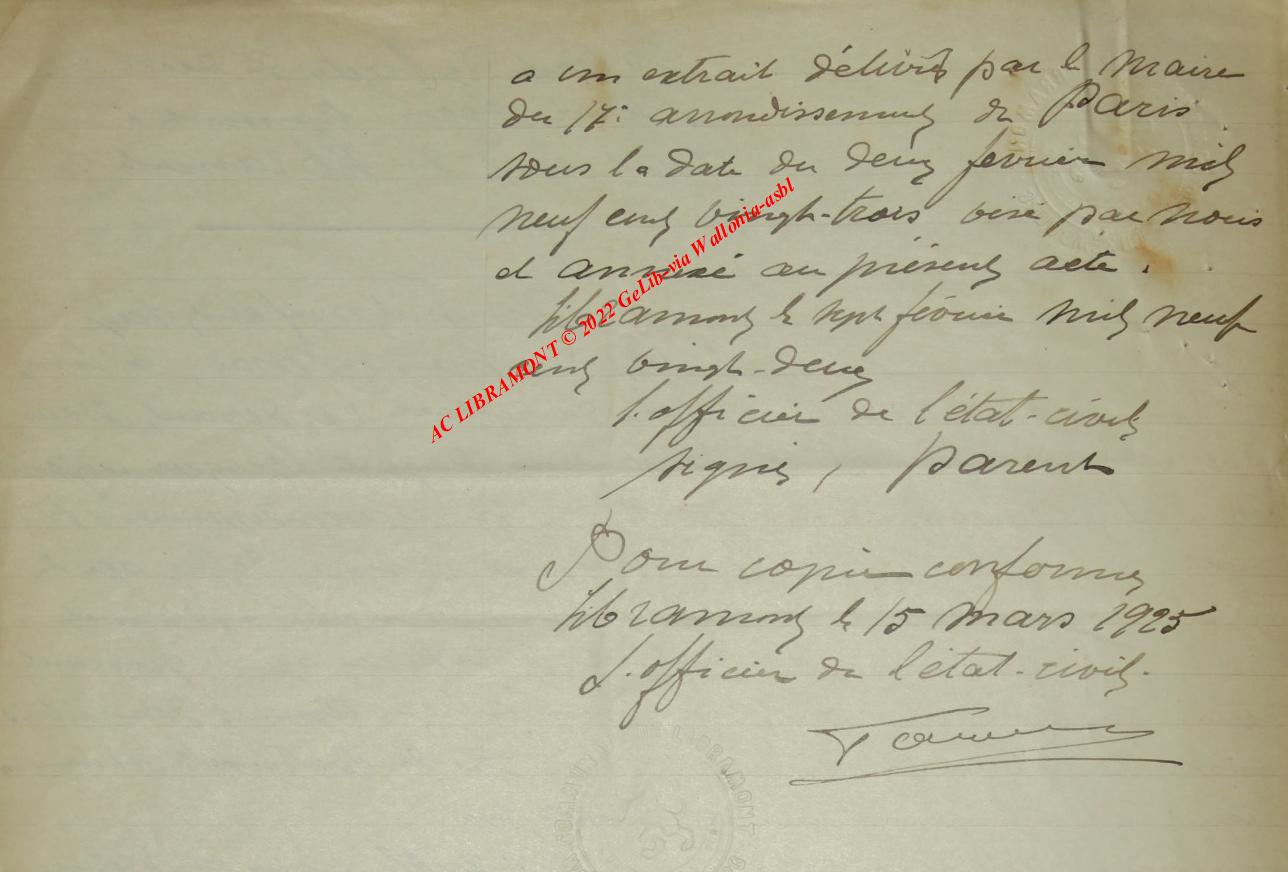 a un extrait délivré par le Maire
du 17e arrondissement de Paris
sous la date du deux février mil
neuf cent vingt-trois visé par nous
et annexé au présent acte.
Libramont le sept février mil neuf
cent vingt-deux
l'officier de l'état-civil
signé, Parent
Pour copie conforme
Libramont le 15 mars 1925
L'officier de l'état-civil.
AC LIBRAMONT © 2022 GeLib-via Wallonia-asbl
DE LIBRAMONT